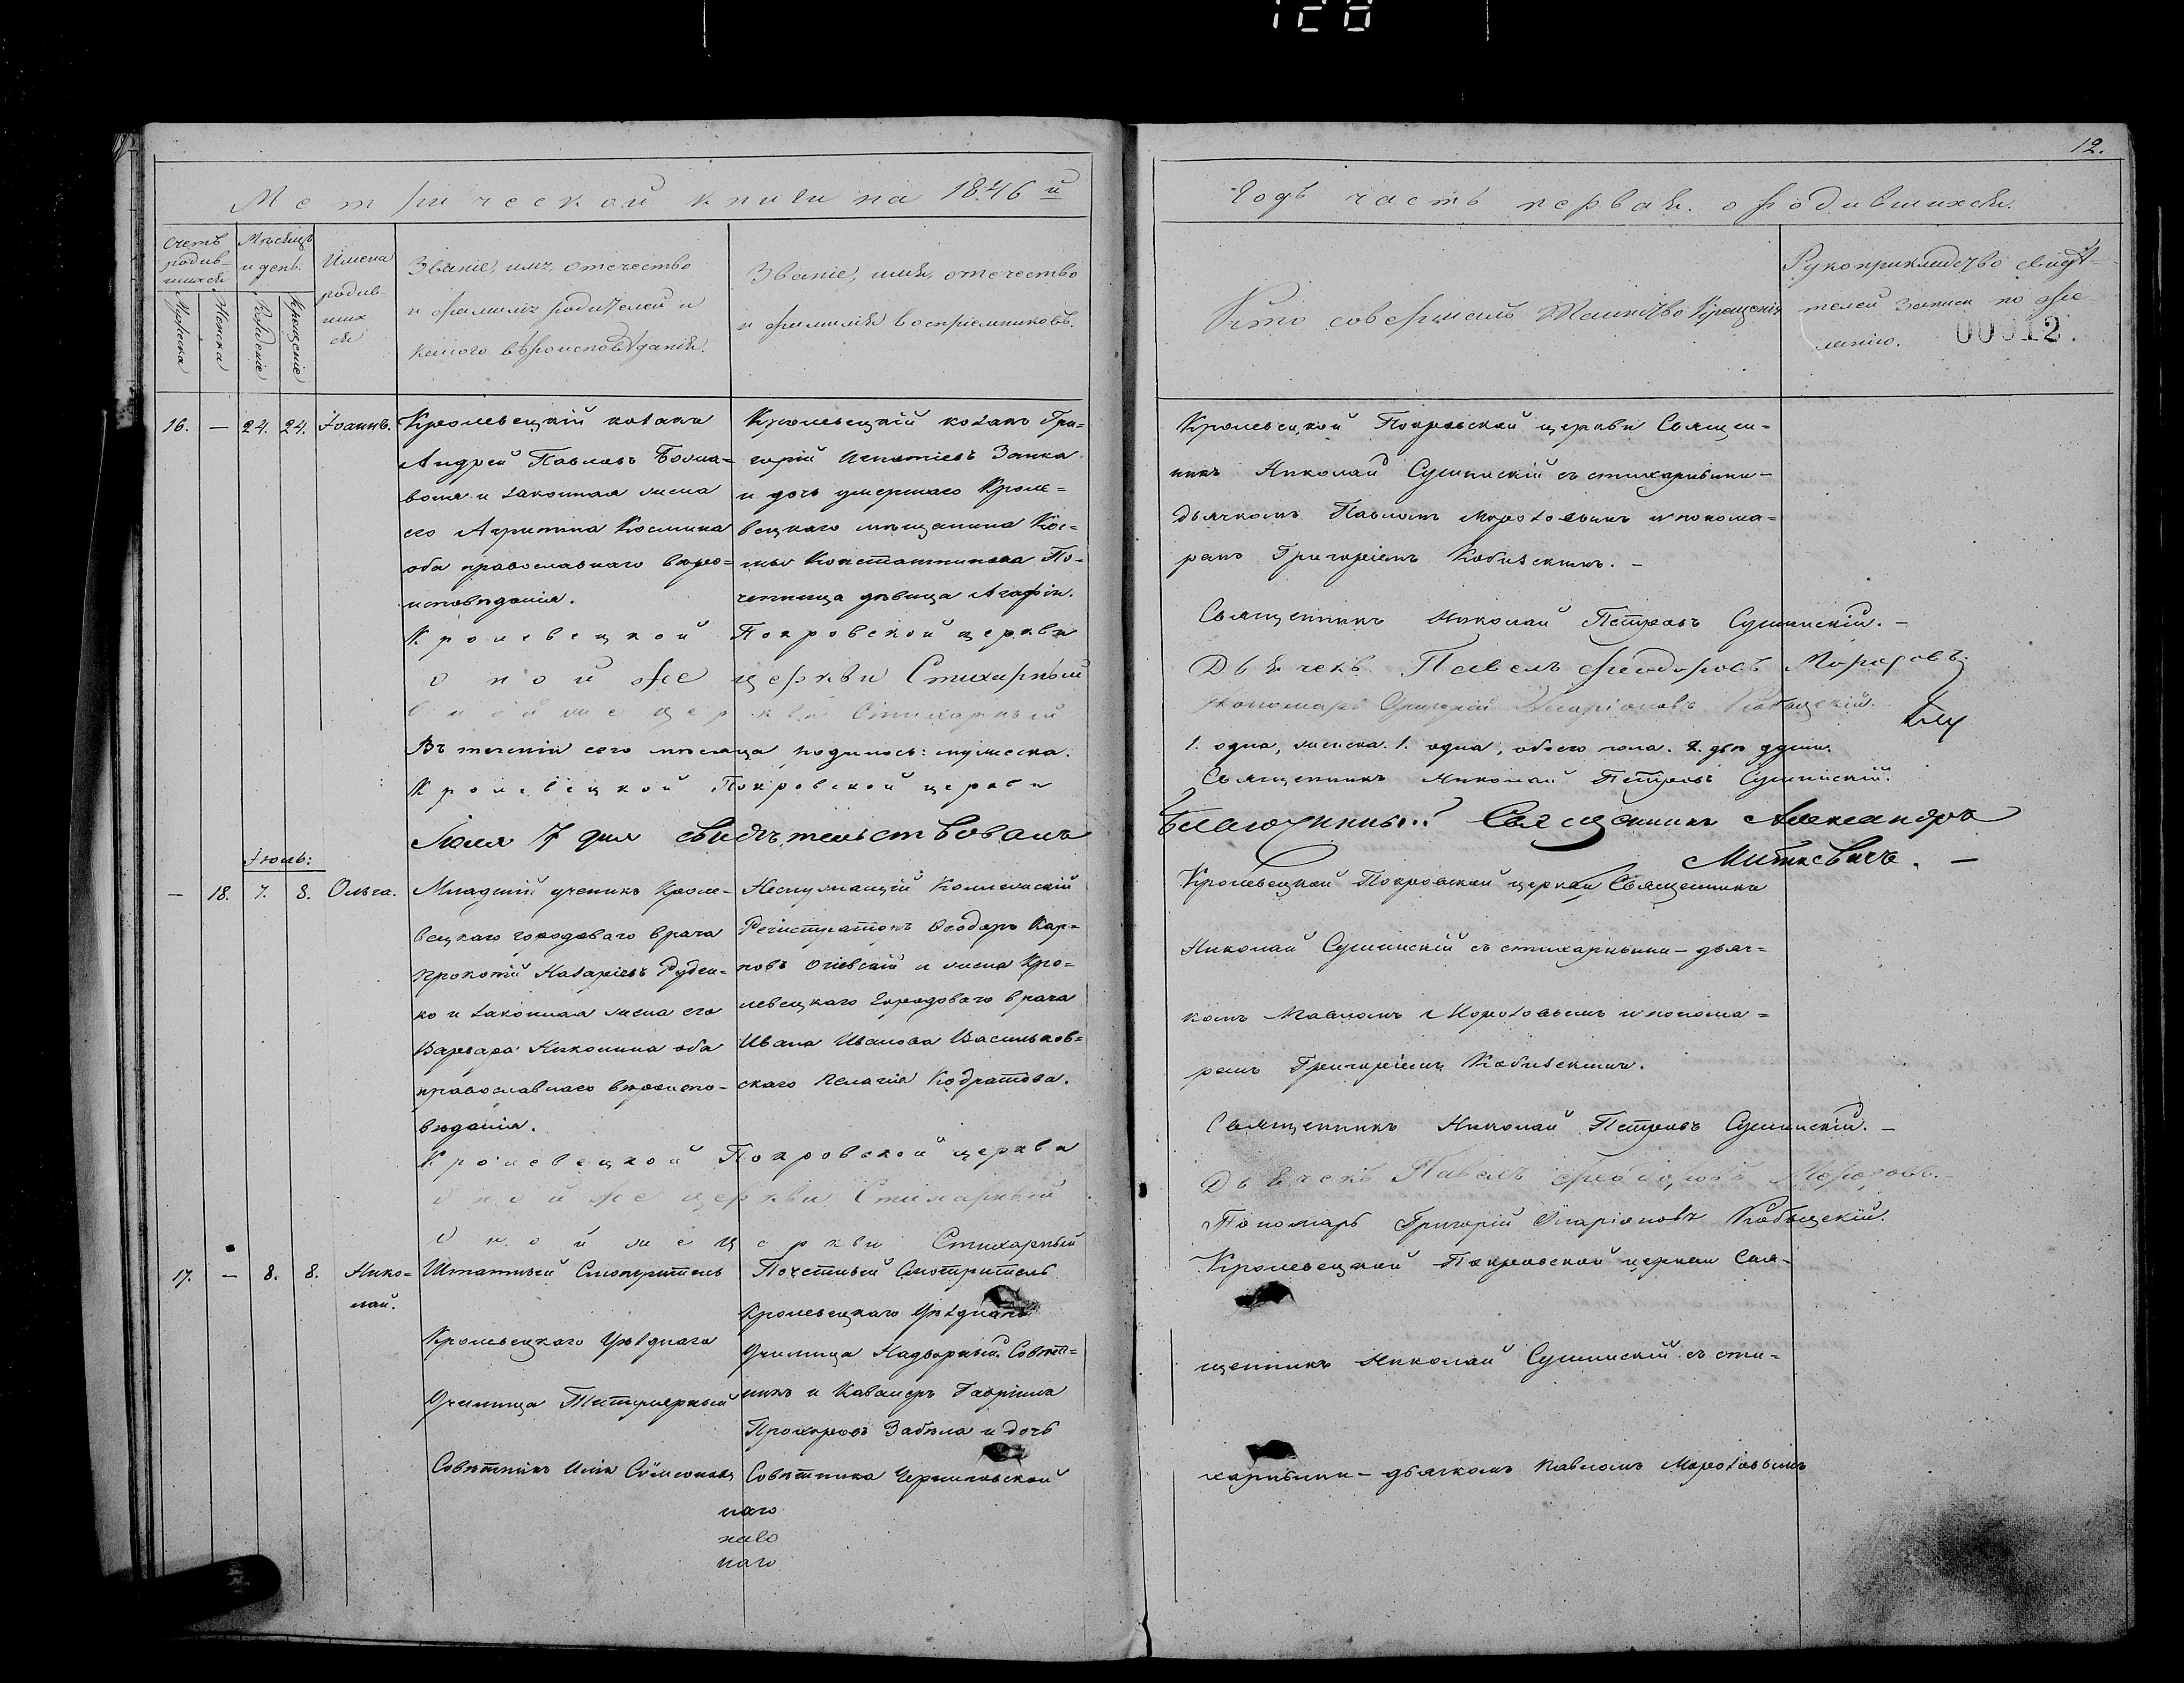 128
12.
Метрической книги на 1846й
Годъ часть первая. о родившихся.
Счетъ родив-
шихся
Мужеска
Женска
Мѣсяцъ
и день.
Рожденіе
Крещеніе
Имена
родив-
ших
ся
Званіе, имя, отечество
и фамилія родителей и
какого вѣроисповѣданія.
Званіе, имя, отечество
и фамилія воспріемниковъ.
Кто совершалъ Таинство Крещенія
Рукоприкладство свидѣ-
телей записи по же-
ланію.
00012.
16. — 24. 24. Іоаннъ.
Кролевецкій козакъ
Андрей Павловъ
и законная жена
его Агрипина Космина
оба православнаго вѣро=
исповѣданія.
Кролевецкій козакъ Гри=
горій Игнатіевъ Заика
и дочь умершаго Кроле=
вецкаго мѣщанина Кос=
мы Константинова По=
девица Агафія.
Кролевецкой Покровской церкви Священ=
никъ Николай Сушинскій съ стихарными-
дьячкомъ Павломъ Морозовымъ и понома=
ремъ Григоріемъ Кобизскимъ. —
Кролевецкой Покровской церкви Священникъ Николай Петровъ Сушинскій. —
Оной же церкви Стихарный Дьячекъ Павелъ Феодоровъ Морозовъ.
Оной же церкви Стихарный Пономарь Григорій Иларіоновъ Кобыщскій.
Въ теченіи сего мѣсяца родилось: мужеска. 1. одна, женска. 1. одна, обоего пола. 2. двѣ души.
Кролевецкой Покровской церкви Священникъ Николай Петровъ Сушинскій.
Іюля 7 дня свидѣтельствовалъ Благочинный Священникъ Александръ
Миткевичъ. —
Іюль:
— 18. 7. 8. Ольга.
Младшій ученикъ Кроле-
вецкаго городоваго врача
Прокопій Назаріевъ Руден-
ко и законная жена его
Варвара Никонина оба
православнаго вѣроиспо-
вѣданія.
Неслужащій Коллежскій
Регистраторъ Феодоръ Кар=
повъ Огіевскій и жена Кро=
левецкаго Городоваго врача
Ивана Иванова Васильков=
скаго Пелагія Кодратова.
Кролевецкой Покровской церкви Священникъ
Николай Сушинскій съ стихарными-дьяч=
комъ Павломъ Морозовымъ и понома=
ремъ Григоріемъ Кобизскимъ.
Кролевецкой Покровской церкви Священникъ Николай Петровъ Сушинскій. —
Оной же церкви Стихарный Дьячекъ Павелъ Феодоровъ Морозовъ.
Оной же церкви Стихарный Пономарь Григорій Иларіоновъ Кобыщскій.
17. — 8. 8. Нико=
лай.
Штатный Смотритель
Кролевецкаго Уѣзднаго
Училища Титулярный
Совѣтникъ Илія Симеоновъ
Почетный Смотритель
Кролевецкаго Уѣзднаго
Училища Надворный Совѣт=
никъ и Кавалеръ Гавріилъ
Прохоровъ Забѣла и дочь
Совѣтника Черниговской
наго
наго
наго
Кролевецкой Покровской церкви Свя-
щенникъ Николай Сушинскій съ сти=
харными-дьячкомъ Павломъ Морозовымъ